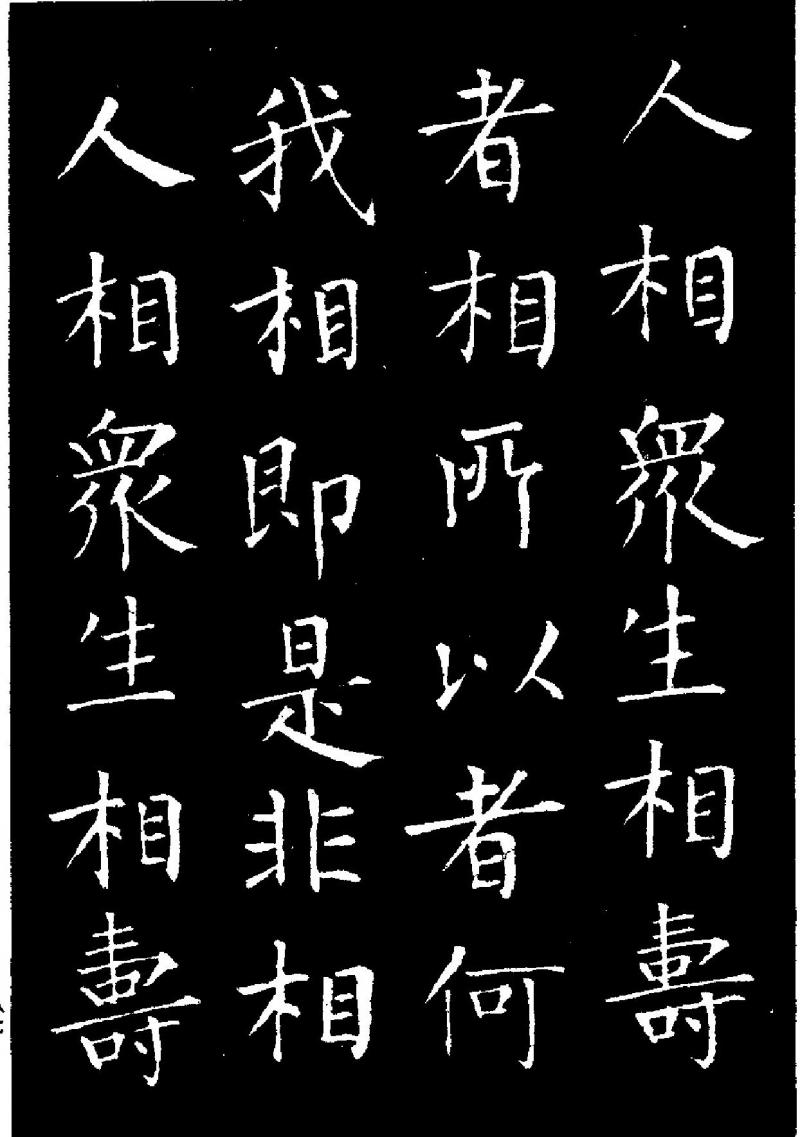 人相眾生相壽
者相所以者何
我相即是非相
人相眾生相壽